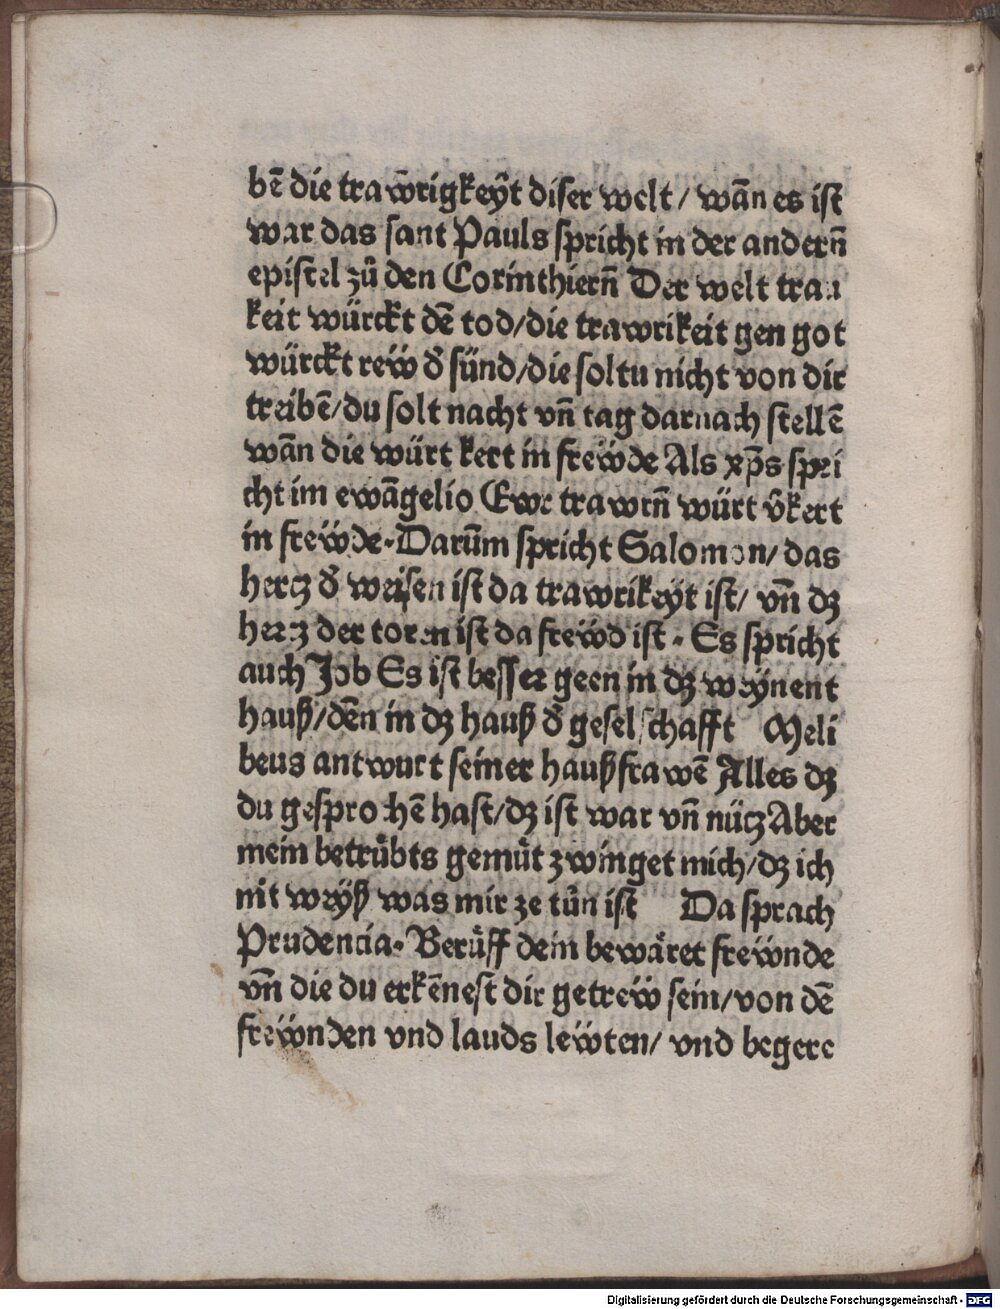 bē die trawͤrigkeÿt diser welt / wān es ist
war das sant Pauls spricht in der andern̄
epistel zů den Corinthiern̄ Der welt trau
keit würckt dē tod/die trawrikeit gen got
würckt reẅ d̕ sünd/die soltu nicht von dir
treibē/du solt nacht vn̄ tag darnach stellē
wān die würt kert in freẅde Als xp̄s spri
cht im ewāgelio Ewr trawrn̄ würt v̄kert
in freẅde. Darūm spricht Salomon/ das
hercz d̕ weisen ist da trawrikeyt ist/ vn̄ dz
hercz der toren ist da freẅd ist. Es spricht
auch Job Es ist besser geen in dz weynent
hauß/dēn in dz hauß d̕ geselschafft Meli
beus antwurt seiner haußfrawē Alles dz
du gesprochē hast/dz ist war vn̄ nücz Aber
mein betrůbts gemůt zwinget mich/dz ich
nit weyß was mir ze tůn ist Da sprach
Prudencia. Berůff dein bewäret freẅnde
vn̄ die du erkēnest dir getreẅ sein/von dē
freẅnden vnd lauds leẅten/ vnd begere
Digitalisierung gefördert durch die Deutsche Forschungsgemeinschaft - DFG